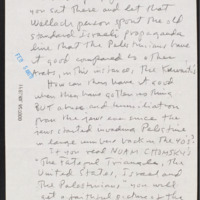 you sat there and let that
Wallach person spout the old
standard Israeli propaganda
line that the Palestinians have
it good compared to other
Arabs, in this instance, the Kuwaiti's
How can they have it good
when they have gotten nothing
BUT abuse and humiliation
from the Jews ever since the
Jews started invading Palestine
in large numbers back in the 40s?
If you read NOAM CHOMSKY'S
"The Fateful Triangle, The
United States, Israel and
The Palestinians" you will
get a truthful picture of the